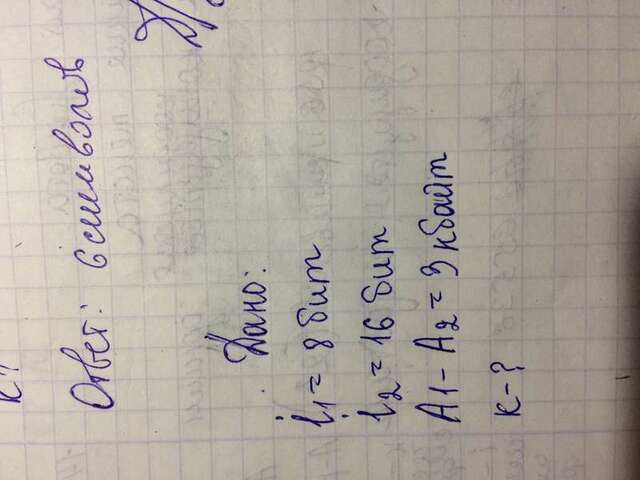 к?
Ответ: 6 символов
Дано:
i1 = 8 бит
i2 = 16 бит
A1 - A2 = 3 кбайт
к - ?